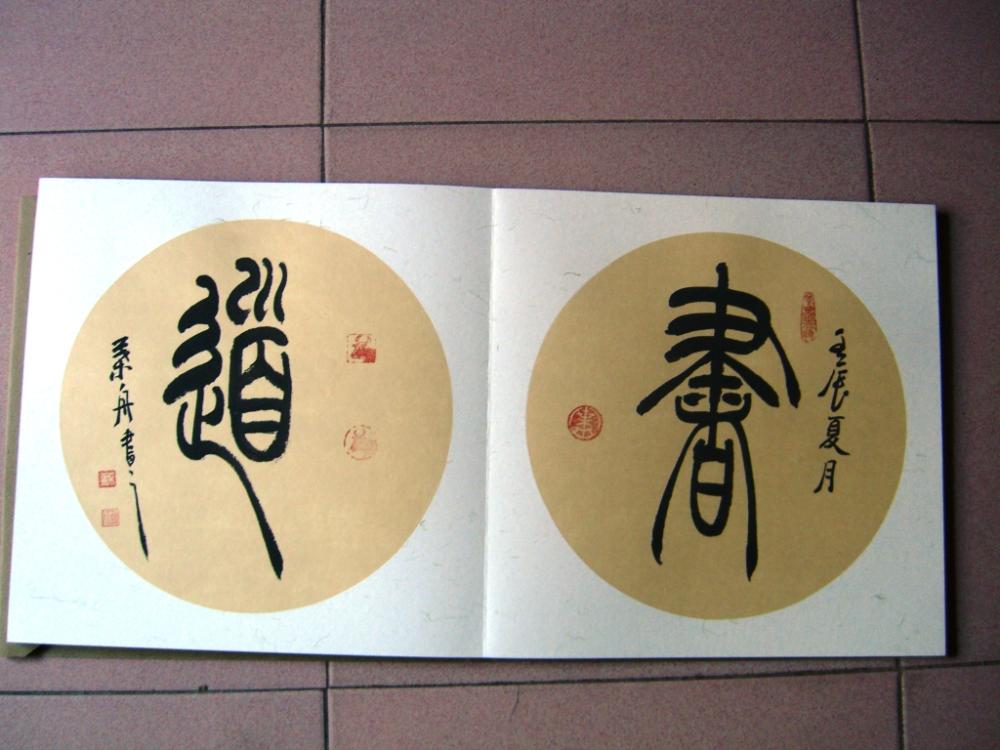 壬辰夏月
書
道
舟書之